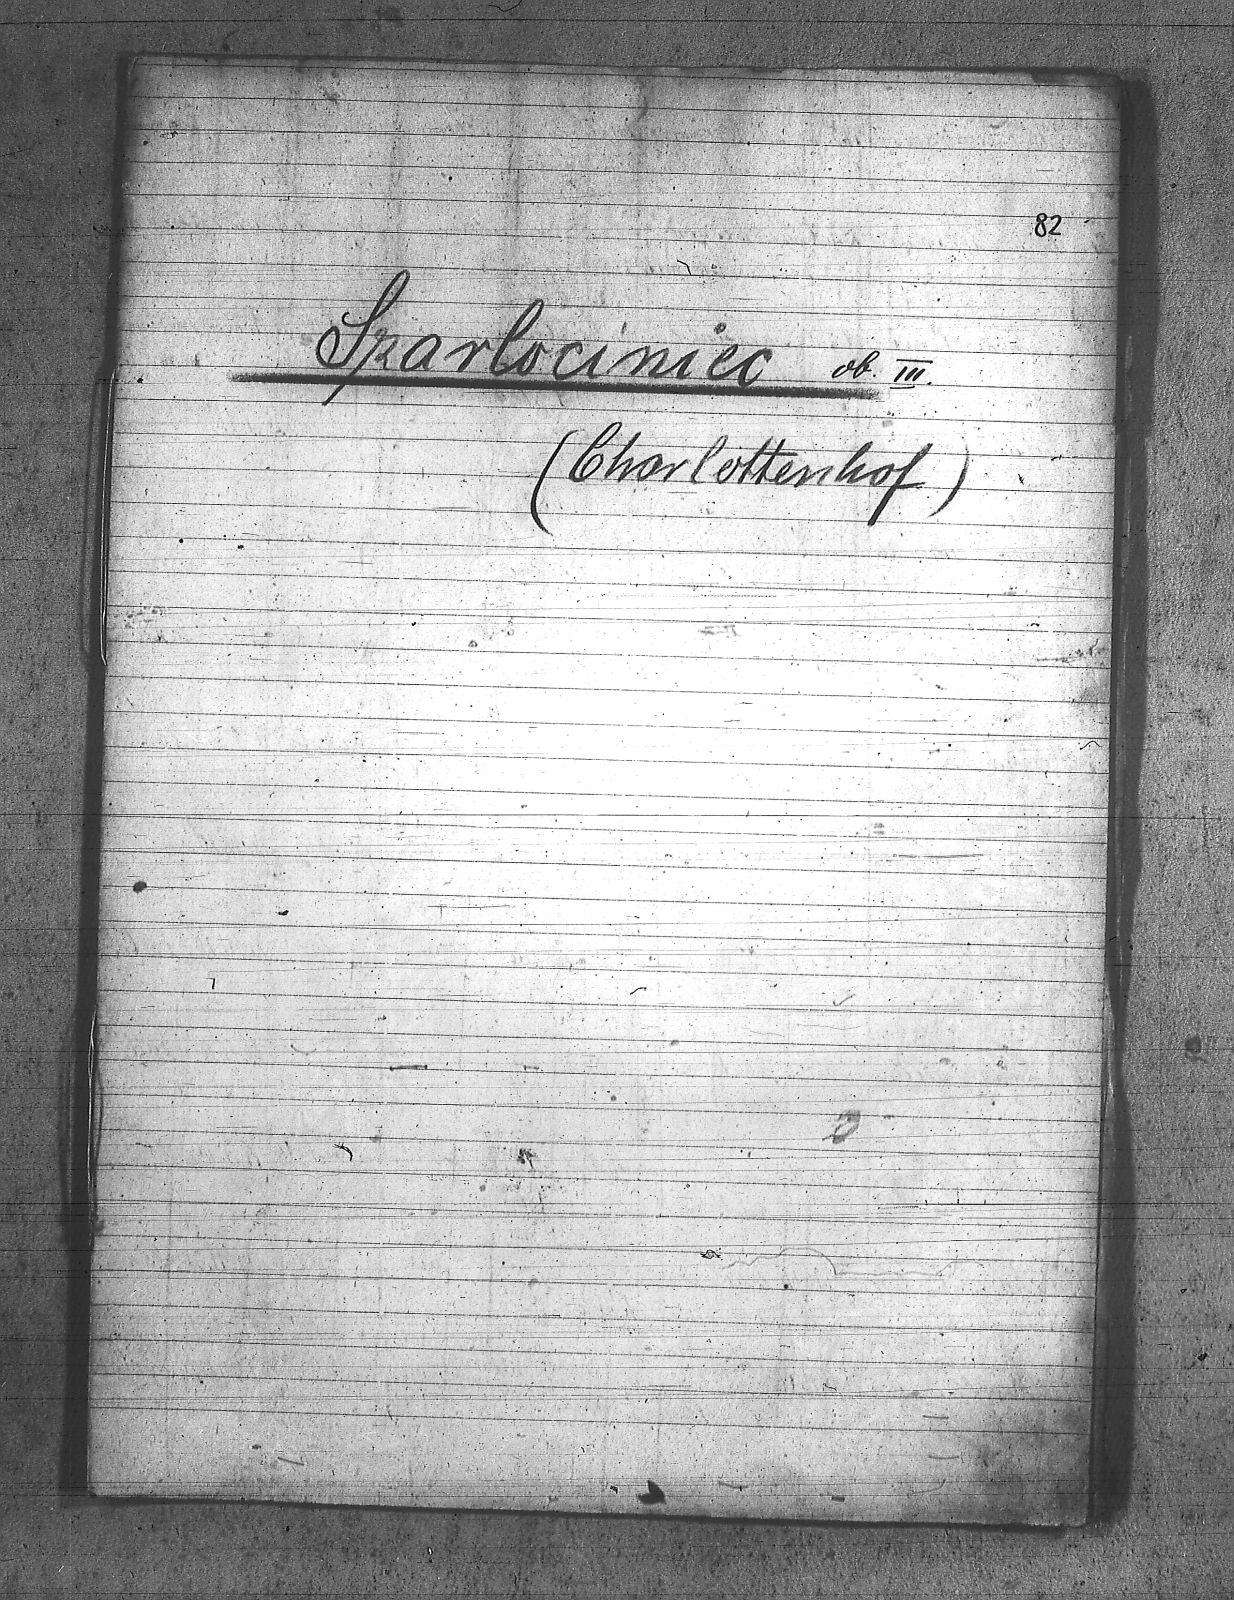 82
Szarlociniec ob. III.
(Charlottenhof)